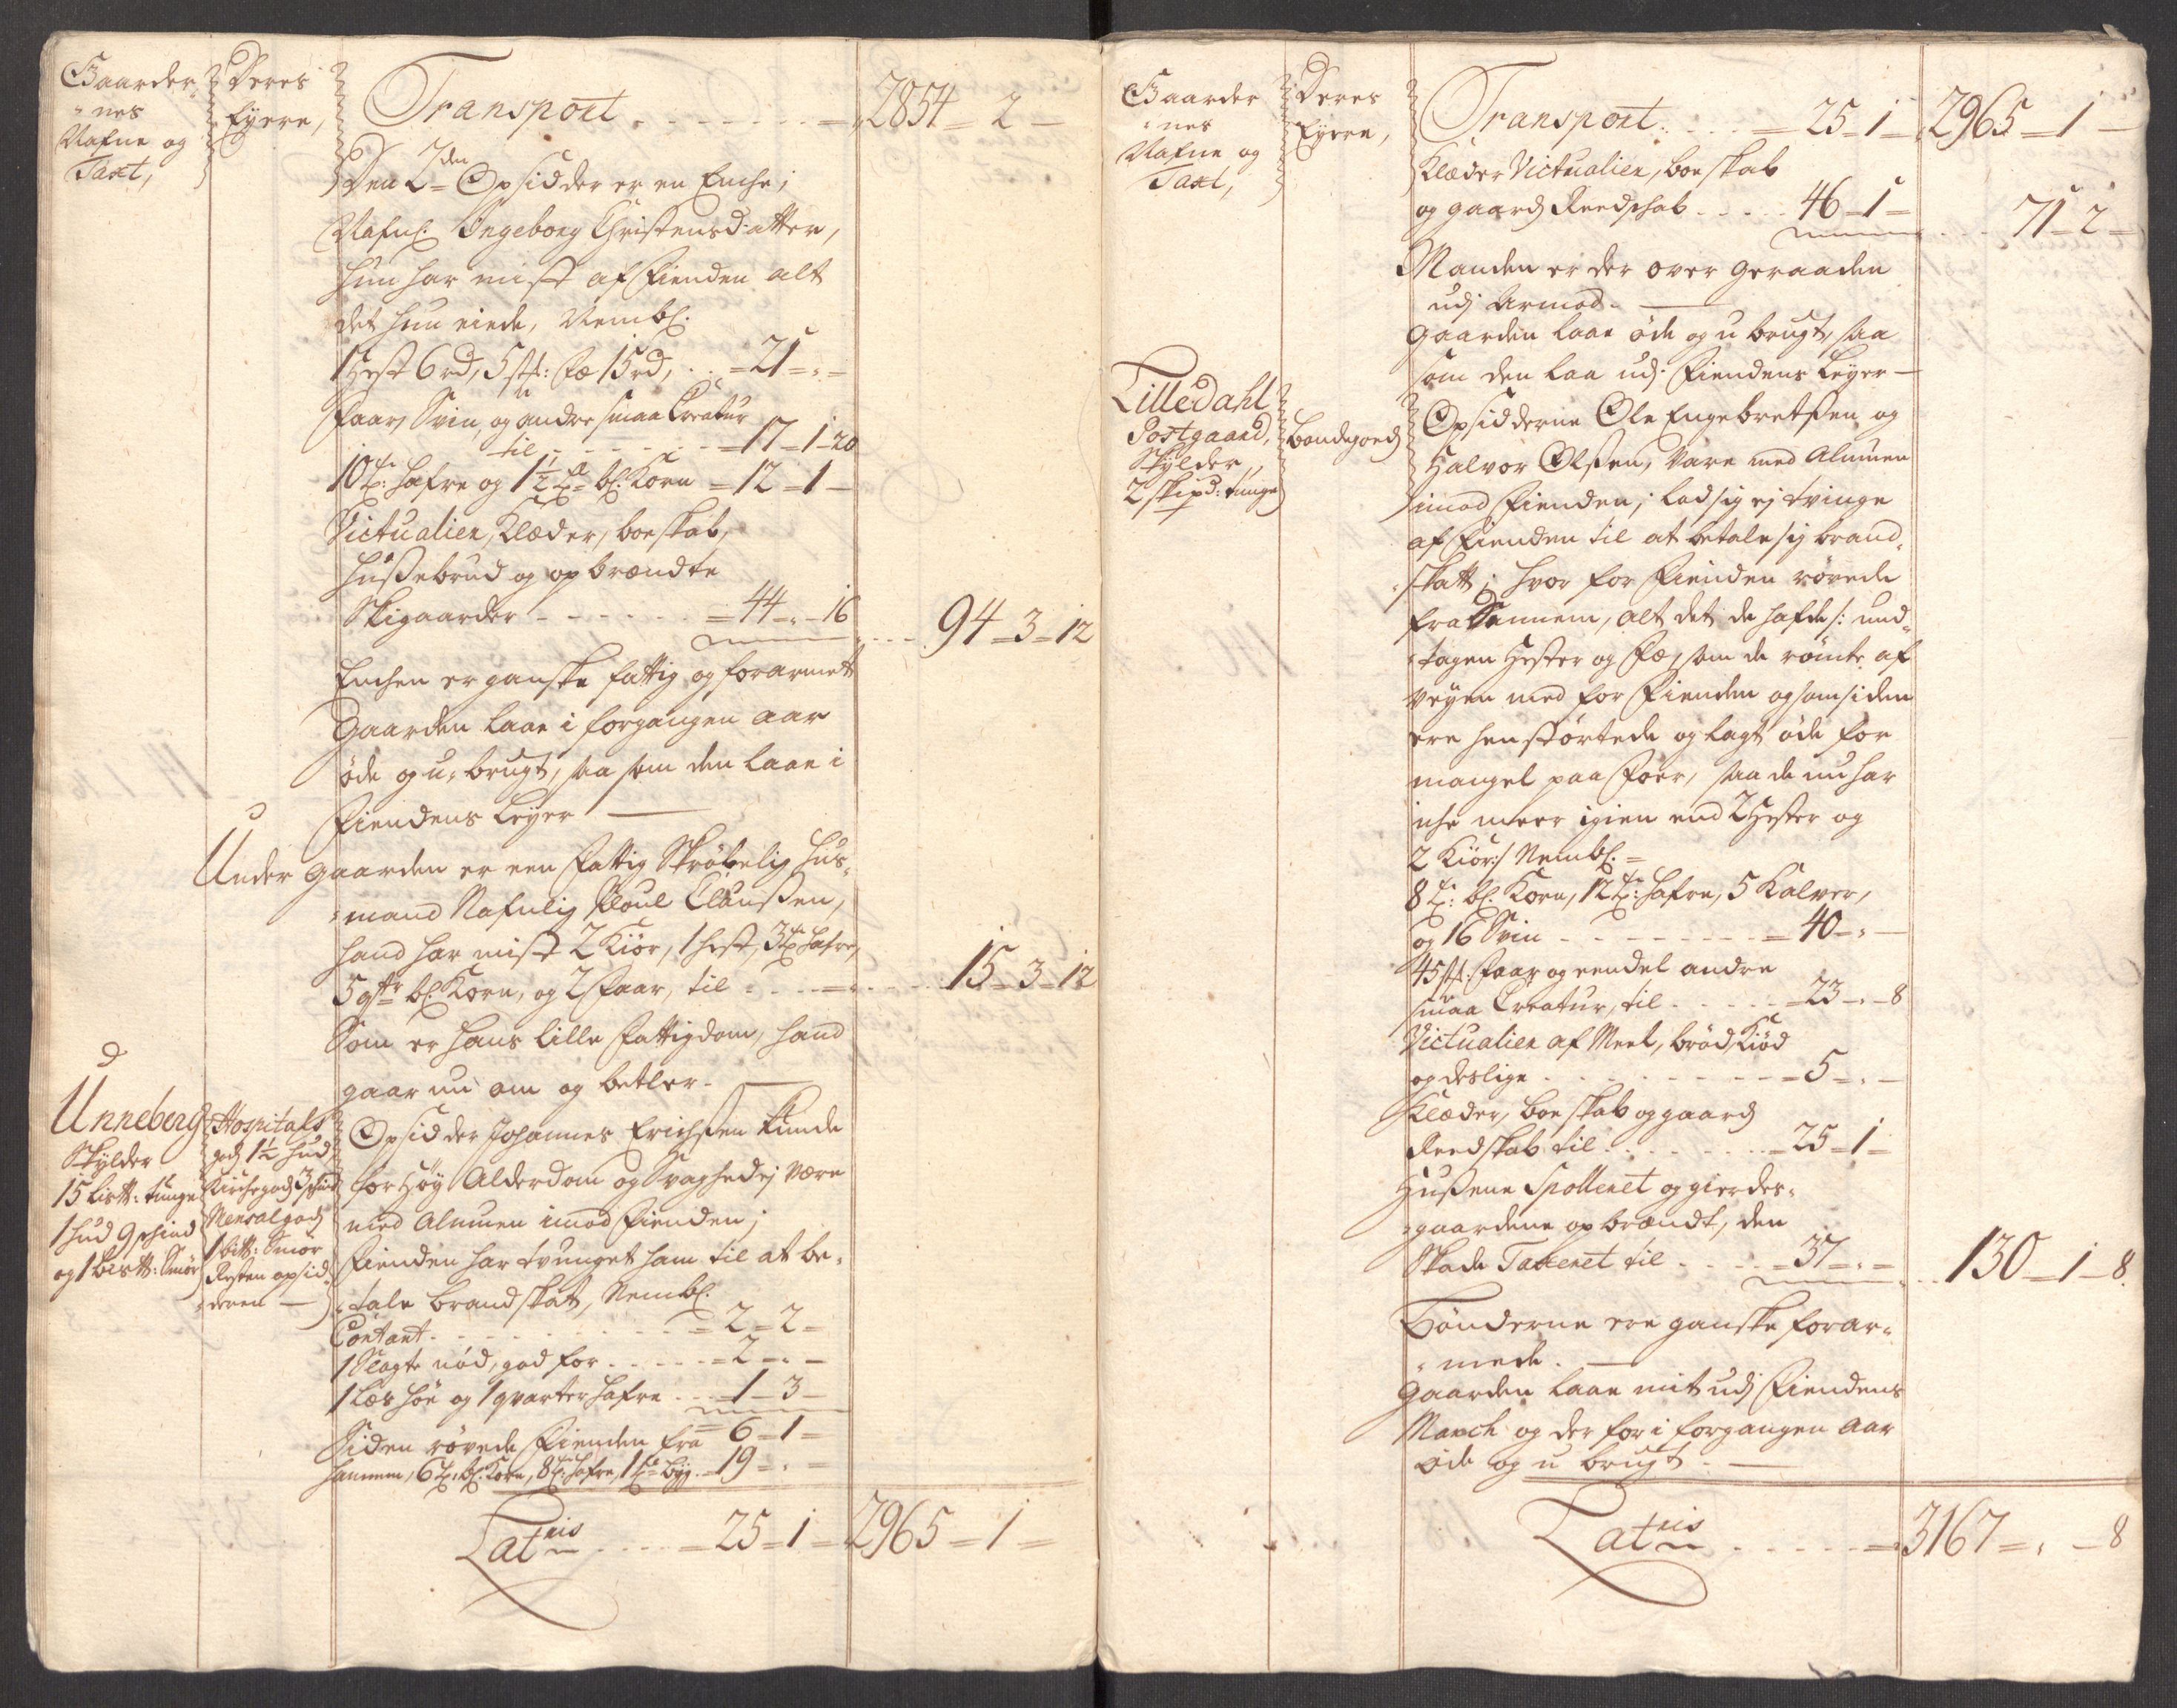 Gaarder
nes
Nafne og
Taxt,
Deres
Eyere,
Transport. - - - - - - = 2854 = 2 —
Den 2den Opsidder er en Enche;
Nafnl. Ingeborg Christensdatter,
hun har mist af Fienden alt
det hun eiede, Nembl.
1 Hest 6 rd, 5 st: Fæ 15 rd, . . = 21 = „ =
Faar, Svin, og andre smaa Creatur
til - - - - - = 17 = 1 = 20
10 t: Hafre og 1½ t: bl. Korn = 12 = 1 —
Victualier, Klæder, boeskab,
Hussebrud og op brændte
Skigaarder - - - - - - = 44 = „ = 16
94 = 3 = 12
Enchen er ganske fattig og forarmet
Gaarden laae i forgangen aar
øde og u-brugt, saa som den laae i
Fiendens Leyer —
Under gaarden er een Fattig Skrøbelig Huus-
mand Nafnlig Poul Claussen,
hand har mist 2 Kiør, 1 hest, 3 t: hafre,
5 qtr bl. Korn, og 2 Faar, til - - - - 15 = 3 = 12
Som er hans lille Fattigdom, hand
gaar nu om og betler. —
Unneberg
Skylder
15 Listt: tunge
1 hud 9 schind
og 1 bistt: Smør
Hospitals
gods 1½ hud
Kirchegods 3 schind
Mensalgods
1 bitt: Smør
Resten opsid-
deren —
Opsidder Johannes Erichssen kunde
for Høy Alderdom og Svaghed ej være
med Almuen imod Fienden;
Fienden har tvunget ham til at be-
tale brandskat, Nembl.
Contant - - - - - - = 2 = 2 =
1 Slagte nød, god for - - - - = 2 = „ —
1 Læs høe og 1 qvarter hafre - - 1 = 3 —
= 6 = 1 =
Siden røvede Fienden fra
hannem, 6 t: bl. Korn, 8 t: hafre, 1 t: byg. = 19 = „ =
Latuis - - - - = 25 = 1 = 2965 = 1 =
Gaarder
nes
Nafne og
Taxt,
Deres
Eyere,
Transport. - - - = 25 = 1 = 2965 = 1 —
Klæder Victualier, boeskab
og gaards Reedschab - - - - 46 = 1 =
71 = 2 =
Manden er der over geraaden
udj Armod. —
Gaarden laae øde og u brugt, saa
som den laa udj Fiendens Leyer —
Lilledahl
Postgaard,
Skylder
2 skipd: tunge
Bondegoeds
Opsidderne Ole Engebretssen og
Halvor Olssen, vare med Almuen
imod Fienden; lod sig ej tvinge
af Fienden til at betale sig brand-
skatt; hvor for Fienden røvede
fra dennem, alt det de hafde /: und-
tagen Hester og Fæ, som de rømte af
veyen med for Fienden og som siden
ere henstørtede og lagt øde for
mangel paa Foer, saa de nu har
iche meer igien end 2 Hester og
2 Kiør:/ Nembl. =
8 t: bl. Korn, 12 t: hafre, 5 Kalver,
og 16 Svin - - - - - - = 40 = „ —
45 st: Faar og een del andre
smaa Creatur, til - - - - = 23 = „ = 8
Victualier af Meel, brød, Kiød
og deslige - - - - - - = 5 = „ —
Klæder, boeskab og gaards
Reedskab til - - - - - = 25 = 1 =
Hussene Spolleret og gierdes-
gaardene op brændt, den
Skade Taxeret til - - - = 37 = „ =
130 = 1 = 8.
Bønderne ere ganske forar-
mede. —
Gaarden laae mit udj Fiendens
March og der for i forgangen aar
øde og u brugt. —
Latuis - - - - - = 3167 = „ = 8